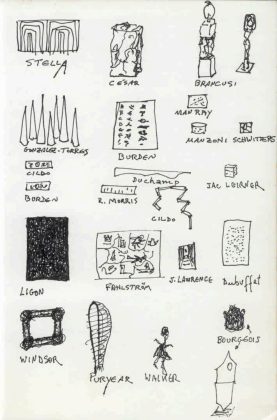 STELLA
CÉSAR
BRANCUSI
MAN RAY
MANZONI
SCHWITTERS
GONZALEZ-TORRES
BURDEN
CILDO
BURDEN
Duchamp
R. MORRIS
CILDO
JAC LEIRNER
LIGON
FAHLSTRÖM
J. LAWRENCE
Dubuffet
WINDSOR
PURYEAR
WALKER
BOURGEOIS